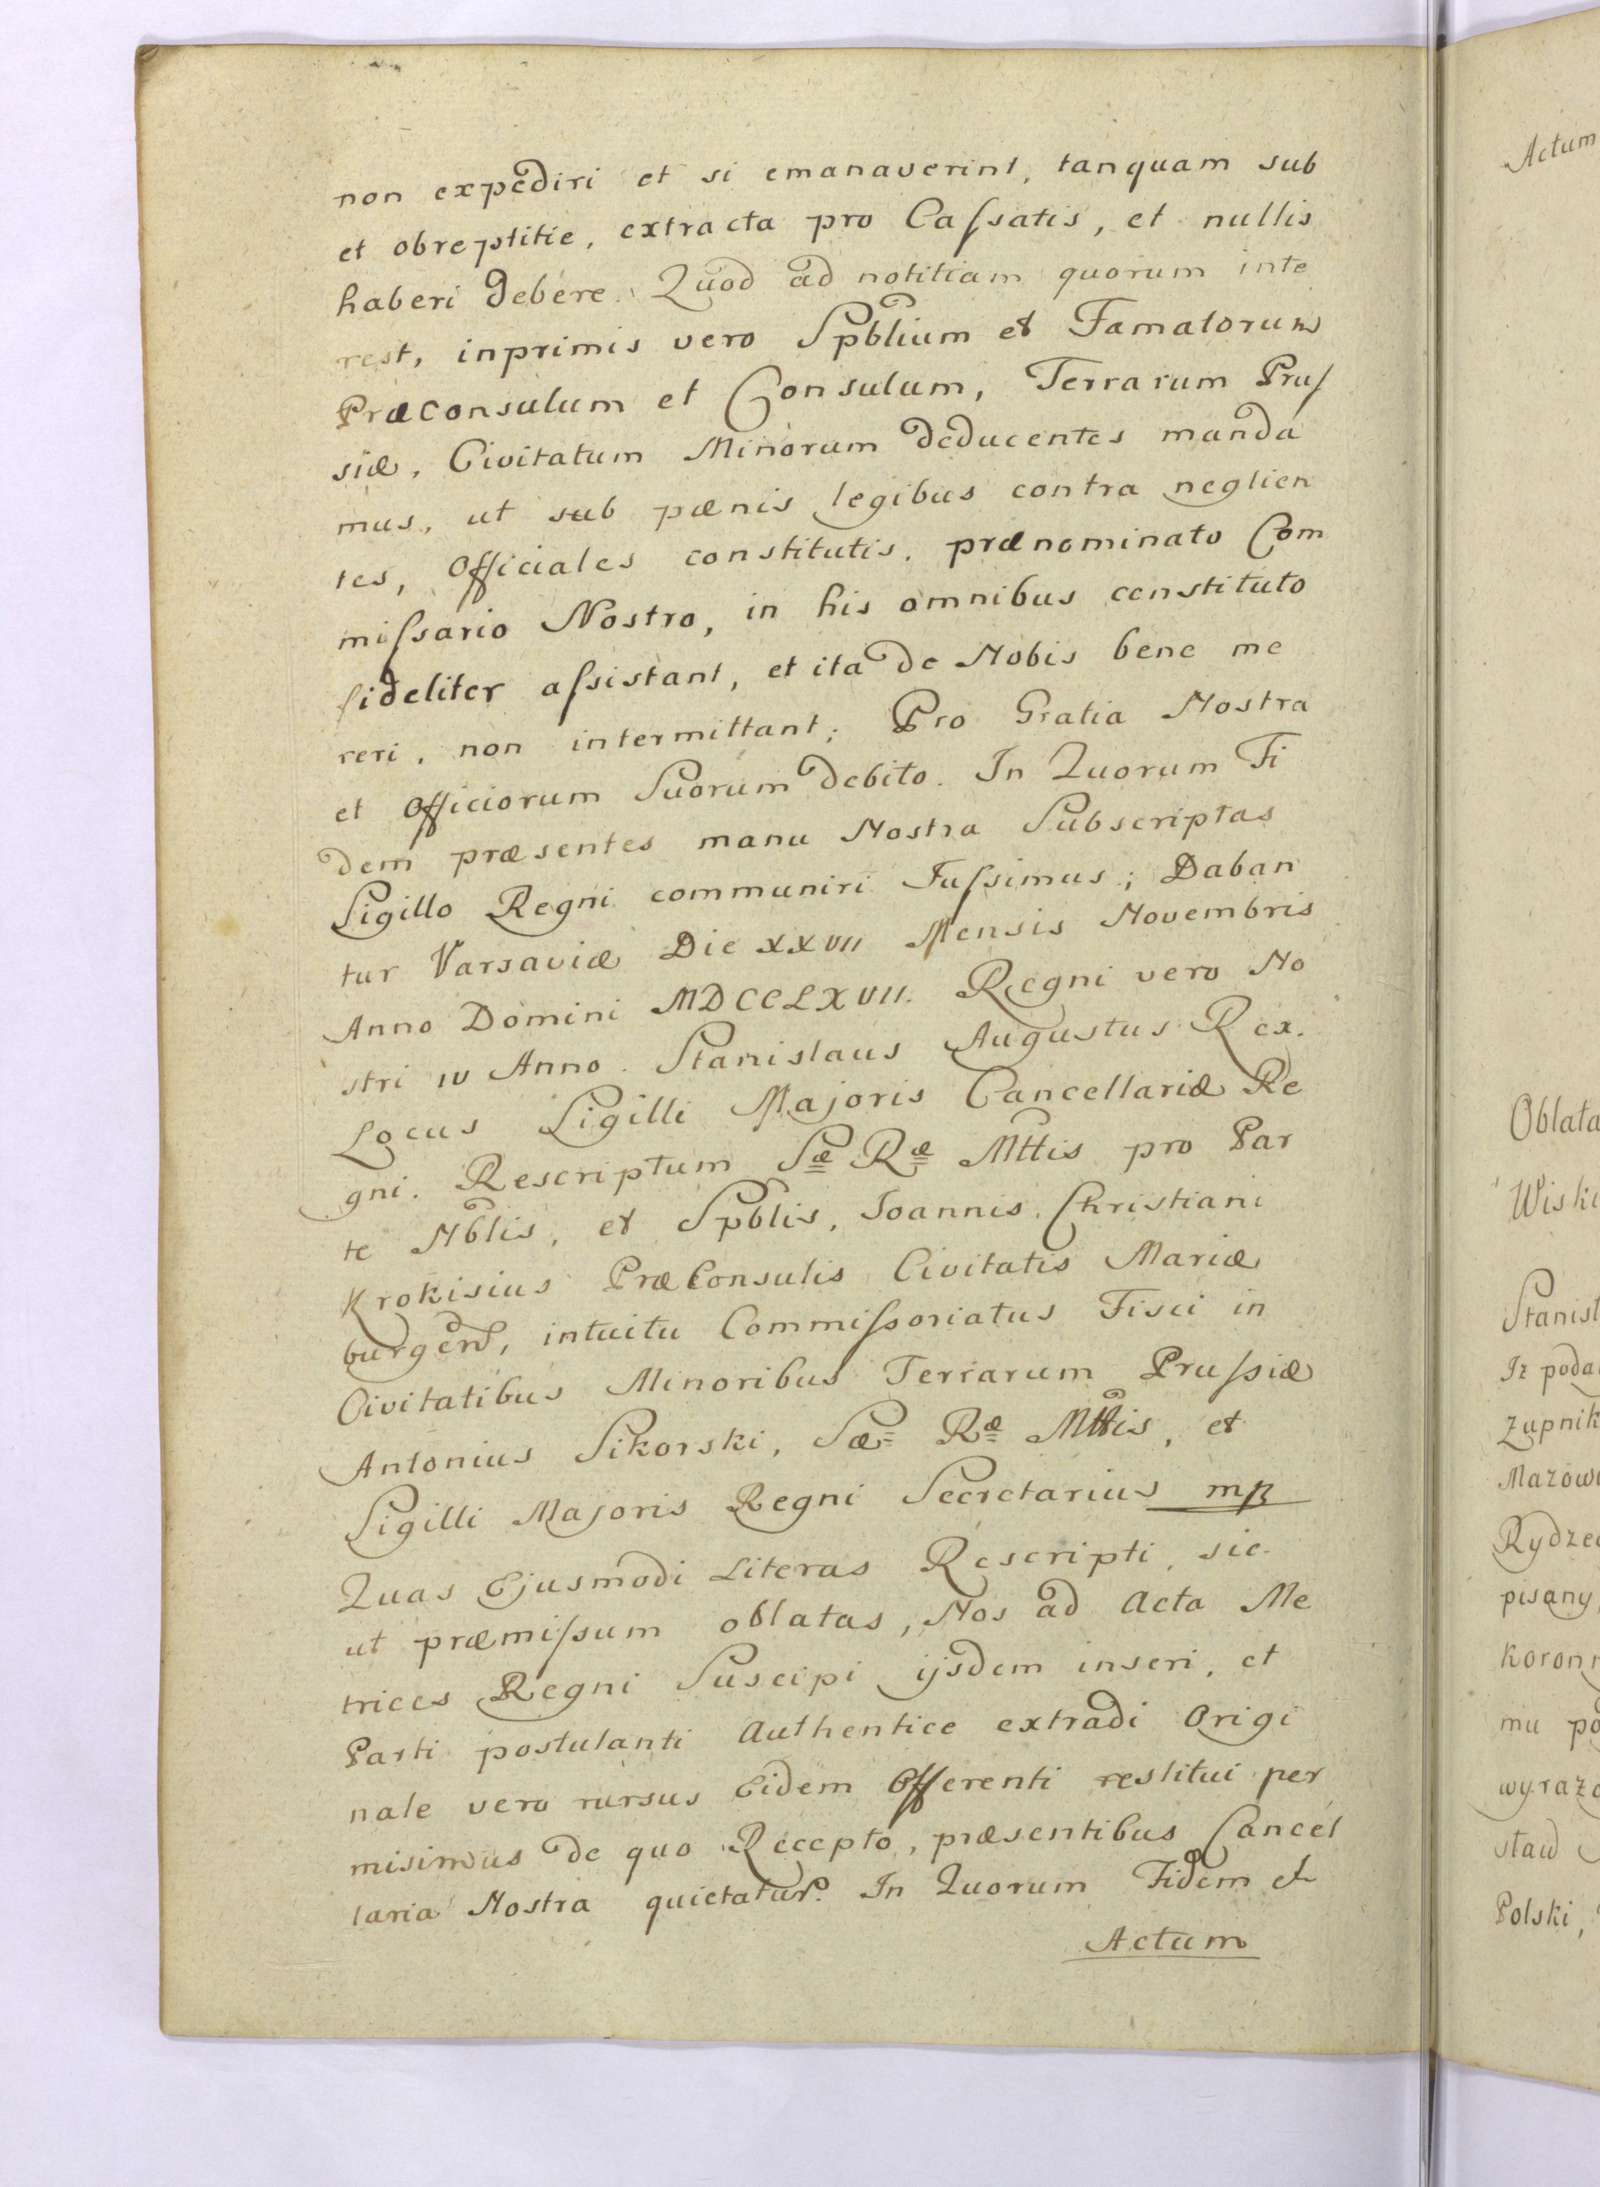 non expediri et si emanaverint, tanquam sub
et obreptitie, extracta pro Caſsatis, et nullis
haberi debere. Quod ad notitiam quorum inte
rest, inprimis vero Spblium et Famatorum
Præconsulum et Consulum, Terrarum Pruſ
siæ, Civitatum Minorum deducentes manda
mus, ut sub pænis legibus contra neglien
tes, Officiales constitutis, prænominato Com
miſsario Nostro, in his omnibus constituto
fideliter aſsistant, et ita de Nobis bene me
reri, non intermittant; Pro Gratia Nostra
et Officiorum Suorum debito. In Quorum Fi
dem præsentes manu Nostra Subscriptas
Sigillo Regni communiri Juſsimus; Daban
tur Varsaviæ Die XXVII Mensis Novembris
Anno Domini MDCCLXVII. Regni vero No
stri IV Anno. Stanislaus Augustus Rex.
Locus Sigilli Majoris Cancellariæ Re
gni. Rescriptum Sæ Ræ Mttis pro Par
te Nblis, et Spblis, Joannis Christiani
Krokisius PræConsulis Civitatis Mariæ
burgens, intuitu Commiſsoriatus Fisci in
Civitatibus Minoribus Terrarum Pruſsiæ
Antonius Sikorski, Sæ Ræ Mttis, et
Sigilli Majoris Regni Secretarius mp
Quas Ejusmodi Literas Rescripti, sic
ut præmiſsum oblatas, Nos ad Acta Me
trices Regni Suscipi ijsdem inseri, et
Parti postulanti Authentice extradi Origi
nale vero rursus Eidem Offerenti restitui per
misimus de quo Recepto, præsentibus Cancel
laria Nostra quietatur. In Quorum Fidem etc
Actum
Actum
Oblata
Wiski
Stanisł
Iż poda
Zupnik
Mazow
Rydze
pisany
koron
mu po
wyraz
sław S
Polski,